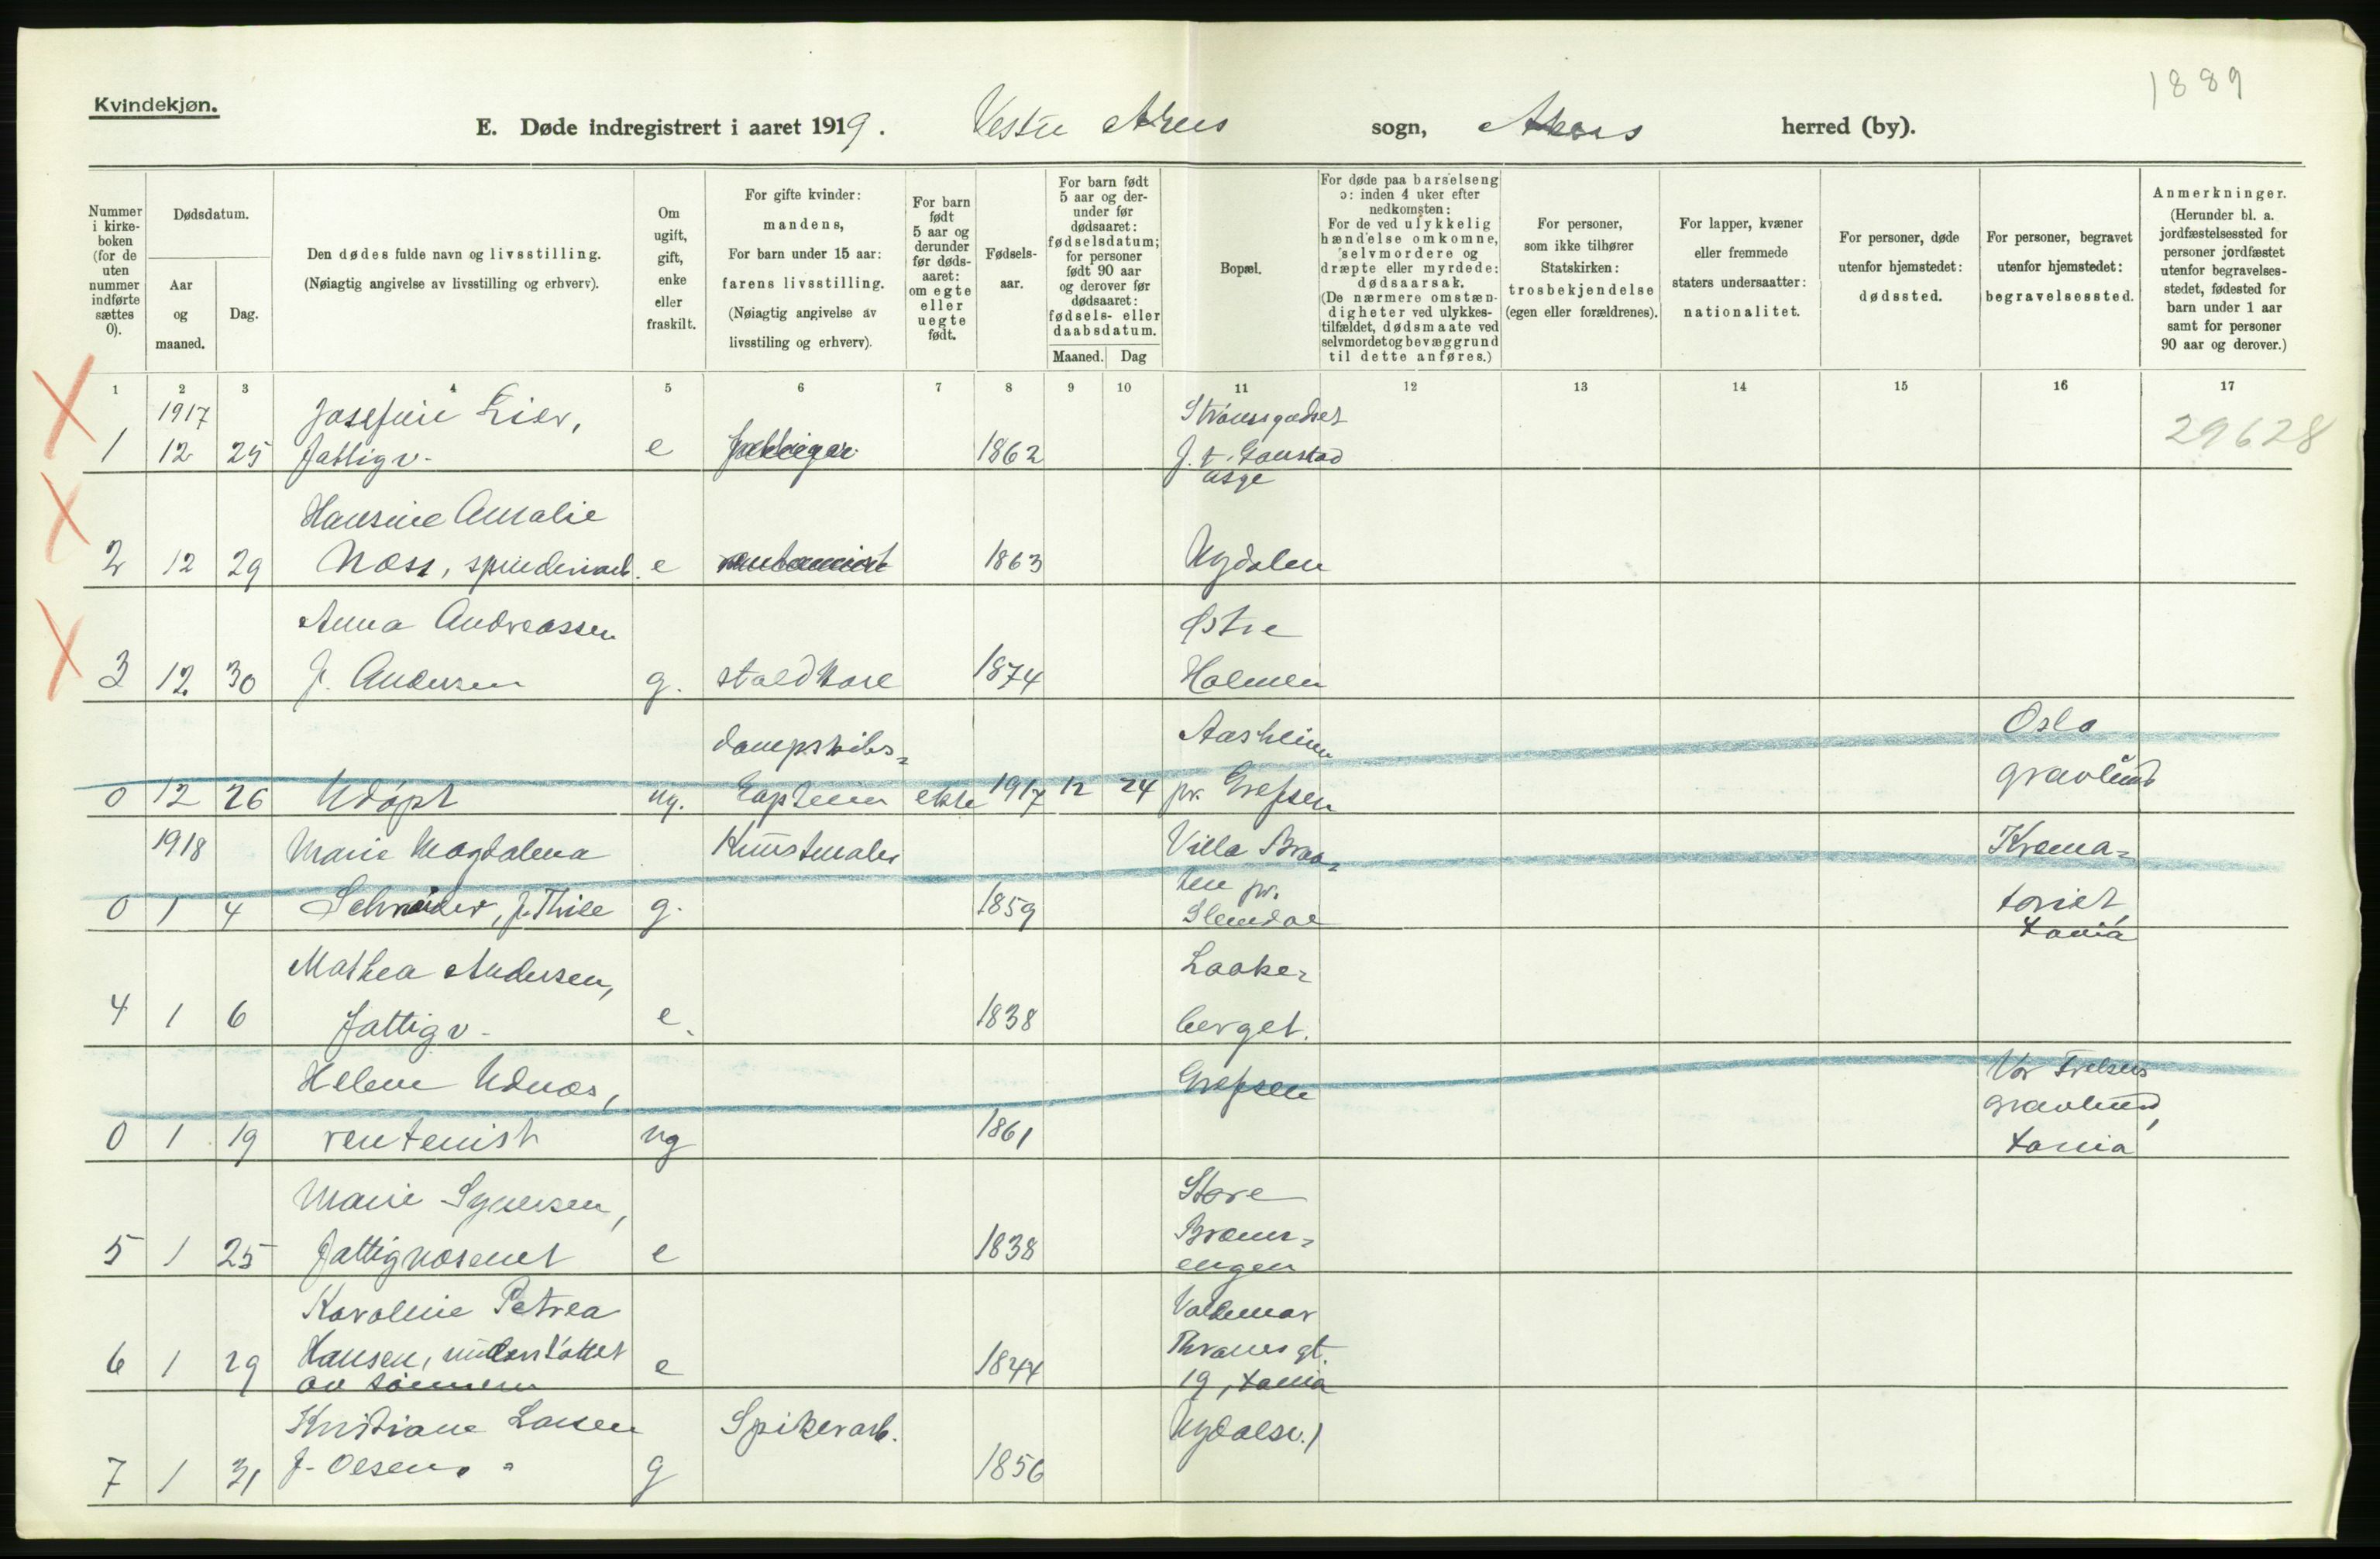 1889
Kvindekjøn.
E. Døde indregistrert i aaret 1919. Vestre Akers sogn, Akers herred (by).
Nummer i kirkeboken (for de uten nummer indførte sættes 0).
Dødsdatum.
Aar og maaned.
Dag.
Den dødes fulde navn og livsstilling.
(Nøiagtig angivelse av livsstilling og erhverv).
Om ugift, gift, enke eller fraskilt.
For gifte kvinder: mandens,
For barn under 15 aar: farens livsstilling.
(Nøiagtig angivelse av livsstiling og erhverv).
For barn født 5 aar og derunder før dødsaaret: om egte eller uegte født.
Fødselsaar.
For barn født 5 aar og derunder før dødsaaret: fødselsdatum; for personer født 90 aar og derover før dødsaaret: fødsels- eller daabsdatum.
Maaned. Dag
Bopæl.
For døde paa barselseng ɔ: inden 4 uker efter nedkomsten:
For de ved ulykkelig hændelse omkomne, selvmordere og dræpte eller myrdede: dødsaarsak.
(De nærmere omstændigheter ved ulykkestilfældet, dødsmaate ved selvmordet og bevæggrund til dette anføres.)
For personer, som ikke tilhører Statskirken: trosbekjendelse (egen eller forældrenes).
For lapper, kvæner eller fremmede staters undersaatter: nationalitet.
For personer, døde utenfor hjemstedet: dødssted.
For personer, begravet utenfor hjemstedet: begravelsessted.
Anmerkninger.
(Herunder bl. a. jordfæstelsessted for personer jordfæstet utenfor begravelsesstedet, fødested for barn under 1 aar samt for personer 90 aar og derover.)
1 2 3 4 5 6 7 8 9 10 11 12 13 14 15 16 17
1917 Josefine Lier, Strømsgodset
1 12 25 fattigv. e 1862 f. t. Gaustad 29628
asyl
Hansine Amalie
2 12 29 Næss, spinderiarb. e 1863 Nydalen
Anna Andreassen Østre
3 12 30 f. Andersen g. staldkarl 1874 Holmen
dampskibs= Aasheim Oslo
0 12 26 Udøpt ug. kaptein ekte 1917 12 24 pr. Grefsen gravlund
1918 Marie Magdalena Kunstmaler Villa Braa= Krema=
ten pr.
0 1 4 Schnøider, f. Thile g. 1859 Slemdal toriet,
Xania
Mathea Andersen, Laake=
4 1 6 fattigv. e. 1838 berget.
Helene Udnæs, Grefsen Vor Frelsers
gravlund,
0 1 19 rentenist ug 1861 Xania
Marie Syversen, Store
5 1 25 fattigvæsenet e 1838 Brøms=
engen
Karoline Petrea Valdemar
6 1 29 Hansen, understøttet e 1844 Thranes gt.
av sønnen 19, Xania
Kristiane Larsen Spikerarb. Nydalsv. 1
7 1 31 f. Olsen. " g 1856